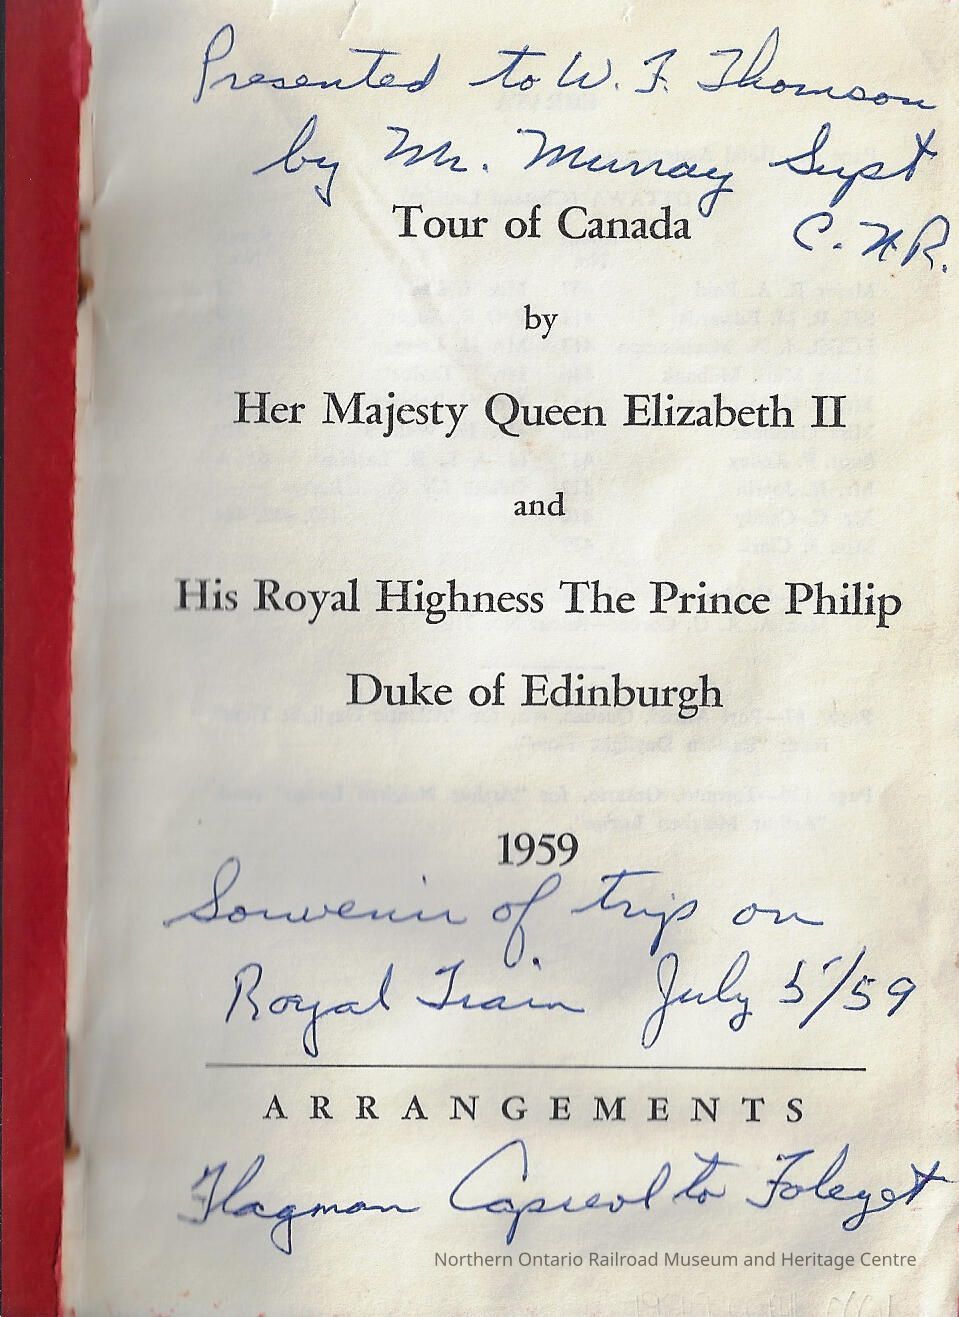 Presented to W. F. Thomson
by Mr. Murray Supt
C.N.R.
Tour of Canada
by
Her Majesty Queen Elizabeth II
and
His Royal Highness The Prince Philip
Duke of Edinburgh
1959
Souvenir of trip on
Royal Train July 5/59
ARRANGEMENTS
Flagman Capreol to Foleyet
Northern Ontario Railroad Museum and Heritage Centre